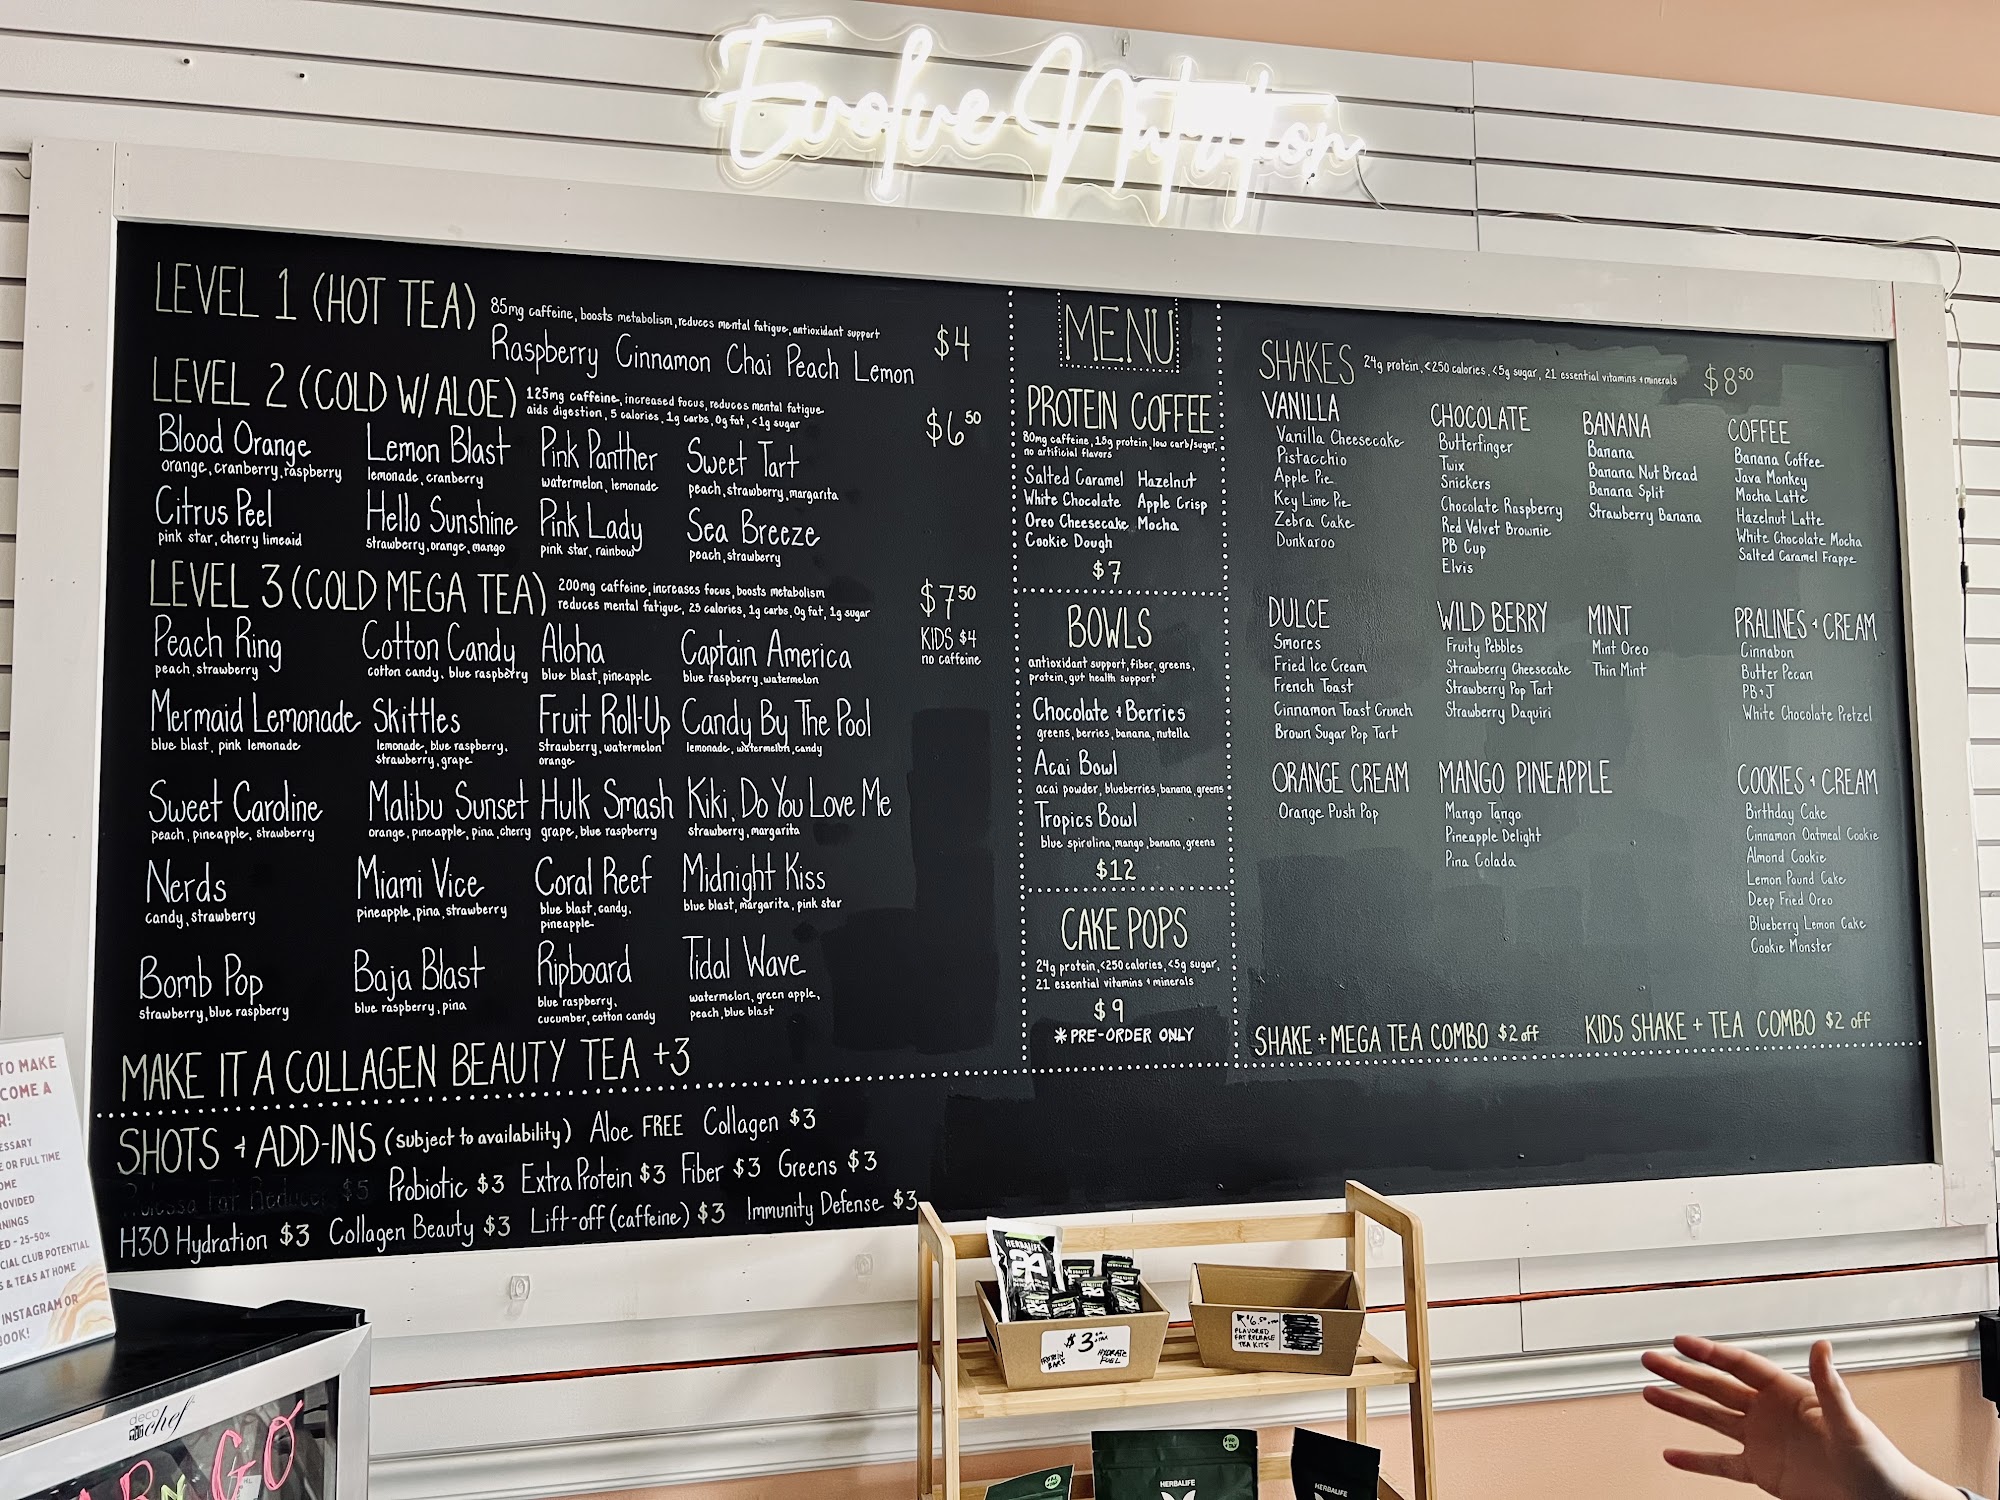 Evolve Nutrition
LEVEL 1 (HOT TEA) 85mg caffeine, boosts metabolism, reduces mental fatigue, antioxidant support $4
Raspberry Cinnamon Chai Peach Lemon
LEVEL 2 (COLD W/ ALOE) 125mg caffeine, increased focus, reduces mental fatigue
aids digestion, 5 calories, 1g carbs, 0g fat, <1g sugar
$6.50
Blood Orange
orange, cranberry, raspberry
Lemon Blast
lemonade, cranberry
Pink Panther
watermelon, lemonade
Sweet Tart
peach, strawberry, margarita
Citrus Peel
pink star, cherry limeaid
Hello Sunshine
strawberry, orange, mango
Pink Lady
pink star, rainbow
Sea Breeze
peach, strawberry
LEVEL 3 (COLD MEGA TEA) 200mg caffeine, increases focus, boosts metabolism
reduces mental fatigue, 25 calories, 1g carbs, 0g fat, 1g sugar
$7.50
KIDS $4
no caffeine
Peach Ring
peach, strawberry
Cotton Candy
cotton candy, blue raspberry
Aloha
blue blast, pineapple
Captain America
blue raspberry, watermelon
Mermaid Lemonade
blue blast, pink lemonade
Skittles
lemonade, blue raspberry,
strawberry, grape
Fruit Roll-Up
strawberry, watermelon
orange
Candy By The Pool
lemonade, watermelon, candy
Sweet Caroline
peach, pineapple, strawberry
Malibu Sunset
orange, pineapple, pina, cherry
Hulk Smash
grape, blue raspberry
Kiki, Do You Love Me
strawberry, margarita
Nerds
candy, strawberry
Miami Vice
pineapple, pina, strawberry
Coral Reef
blue blast, candy,
pineapple
Midnight Kiss
blue blast, margarita, pink star
Bomb Pop
strawberry, blue raspberry
Baja Blast
blue raspberry, pina
Ripboard
blue raspberry,
cucumber, cotton candy
Tidal Wave
watermelon, green apple,
peach, blue blast
MAKE IT A COLLAGEN BEAUTY TEA +3
SHOTS + ADD-INS (subject to availability) Aloe FREE Collagen $3
Fat Reducer $5 Probiotic $3 Extra Protein $3 Fiber $3 Greens $3
H3O Hydration $3 Collagen Beauty $3 Lift-off (caffeine) $3 Immunity Defense $3
MENU
PROTEIN COFFEE
80mg caffeine, 15g protein, low carb/sugar,
no artificial flavors
Salted Caramel Hazelnut
White Chocolate Apple Crisp
Oreo Cheesecake Mocha
Cookie Dough
$7
BOWLS
antioxidant support, fiber, greens,
protein, gut health support
Chocolate + Berries
greens, berries, banana, nutella
Acai Bowl
acai powder, blueberries, banana, greens
Tropics Bowl
blue spirulina, mango, banana, greens
$12
CAKE POPS
24g protein, <250 calories, <5g sugar,
21 essential vitamins + minerals
$9
*PRE-ORDER ONLY
SHAKES 24g protein, <250 calories, <5g sugar, 21 essential vitamins + minerals $8.50
VANILLA
Vanilla Cheesecake
Pistacchio
Apple Pie
Key Lime Pie
Zebra Cake
Dunkaroo
CHOCOLATE
Butterfinger
Twix
Snickers
Chocolate Raspberry
Red Velvet Brownie
PB Cup
Elvis
BANANA
Banana
Banana Nut Bread
Banana Split
Strawberry Banana
COFFEE
Banana Coffee
Java Monkey
Mocha Latte
Hazelnut Latte
White Chocolate Mocha
Salted Caramel Frappe
DULCE
Smores
Fried Ice Cream
French Toast
Cinnamon Toast Crunch
Brown Sugar Pop Tart
WILD BERRY
Fruity Pebbles
Strawberry Cheesecake
Strawberry Pop Tart
Strawberry Daquiri
MINT
Mint Oreo
Thin Mint
PRALINES + CREAM
Cinnabon
Butter Pecan
PB+J
White Chocolate Pretzel
ORANGE CREAM
Orange Push Pop
MANGO PINEAPPLE
Mango Tango
Pineapple Delight
Pina Colada
COOKIES + CREAM
Birthday Cake
Cinnamon Oatmeal Cookie
Almond Cookie
Lemon Pound Cake
Deep Fried Oreo
Blueberry Lemon Cake
Cookie Monster
SHAKE + MEGA TEA COMBO $2 off
KIDS SHAKE + TEA COMBO $2 off
TO MAKE
COME A
R!
ESSARY
E OR FULL TIME
OME
ROVIDED
NINGS
ED - 25-50%
CIAL CLUB POTENTIAL
S & TEAS AT HOME
INSTAGRAM OR
BOOK!
deco chef
GO
HERBALIFE
24
$3
PROTEIN BARS
HYDRATE FUEL
$6.50
FLAVORED
FAT RELEASE
TEA KITS
HERBALIFE
HERBALIFE